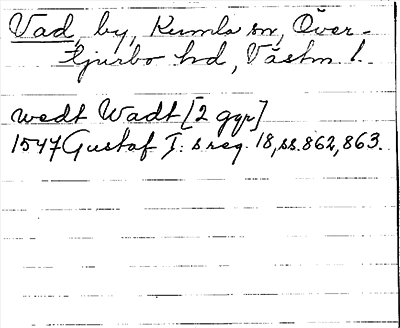 Vad, by, Kumla sn, Över-
tjurbo hd, Västm l.
wedt Wadt [2 ggr]
1547 Gustaf I: s reg. 18, ss. 862, 863.